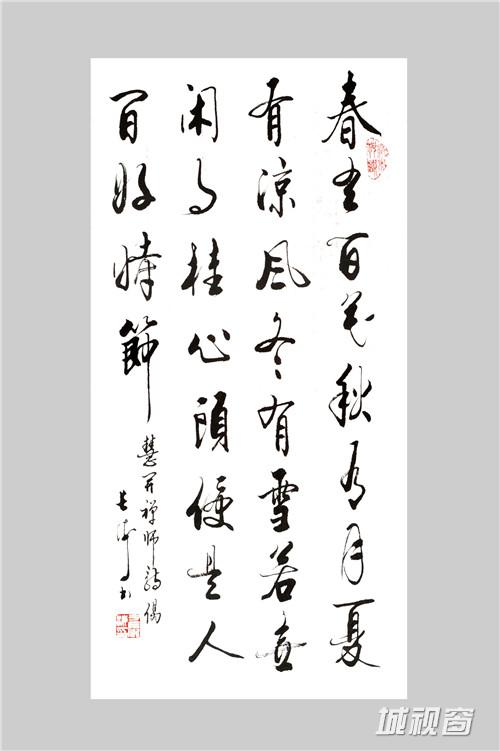 春有百花秋有月夏
有涼风冬有雪若無
闲事挂心頭便是人
间好時節
慧开禅师詩偈
书
城视窗